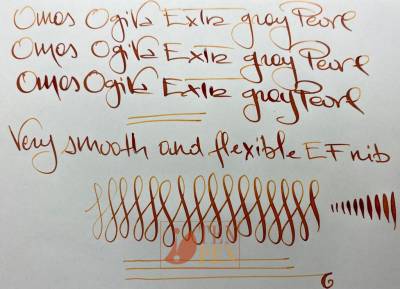 Omas Ogiva Extra gray Pearl
Omas Ogiva Extra gray Pearl
Omas Ogiva Extra gray Pearl
Very smooth and flexible EF nib